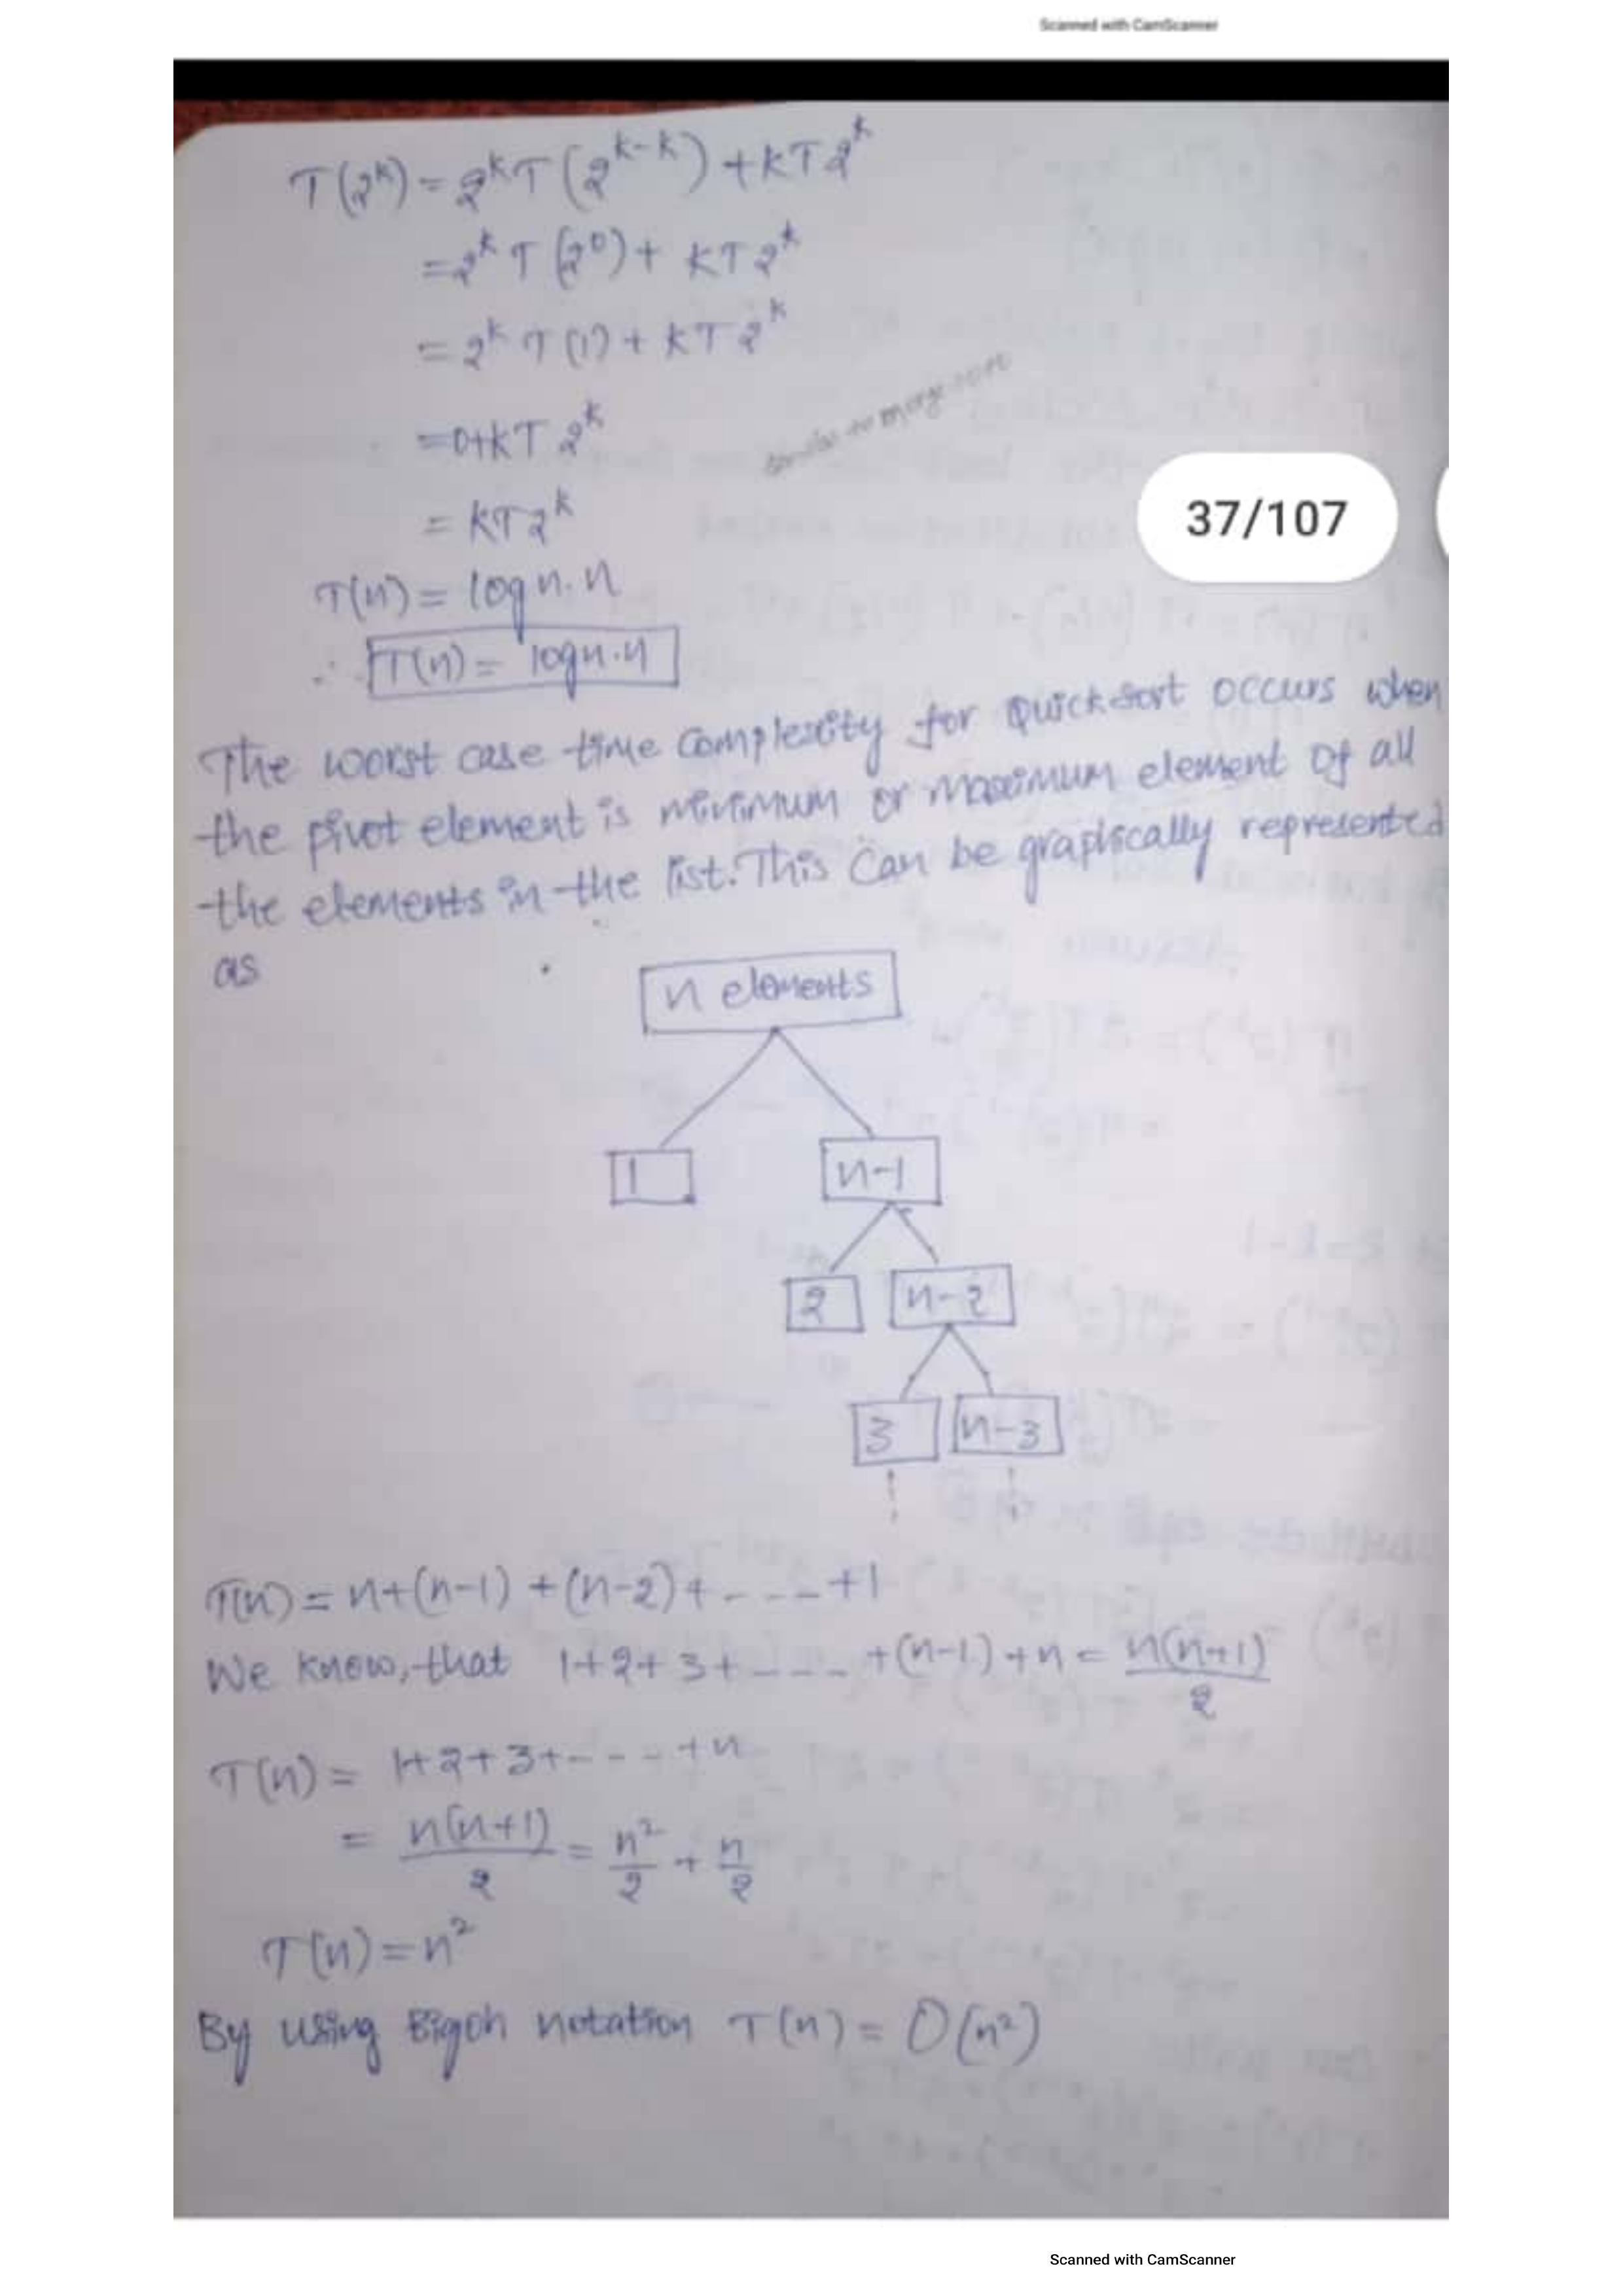 Scanned with CamScanner
T(2^k) = 2^k T(2^{k-k}) + kT2^k
= 2^k T(2^0) + kT2^k
= 2^k T(1) + kT2^k
= 0+kT2^k
similar to merge sort
= kT2^k
37/107
T(n) = log n. n
∴ T(n) = log n. n
The worst case time complexity for Quick sort occurs when
the pivot element is minimum or maximum element of all
the elements in the list. This can be graphically represented
as
n elements
1 n-1
2 n-2
3 n-3
T(n) = n+(n-1) +(n-2)+ - - - - +1
We know, that 1+2+3+ - - - - +(n-1)+n = n(n+1)/2
T(n) = 1+2+3+- - - -+n
= n(n+1)/2 = n²/2 + n/2
T(n) = n²
By using Bigoh notation T(n) = O(n²)
Scanned with CamScanner